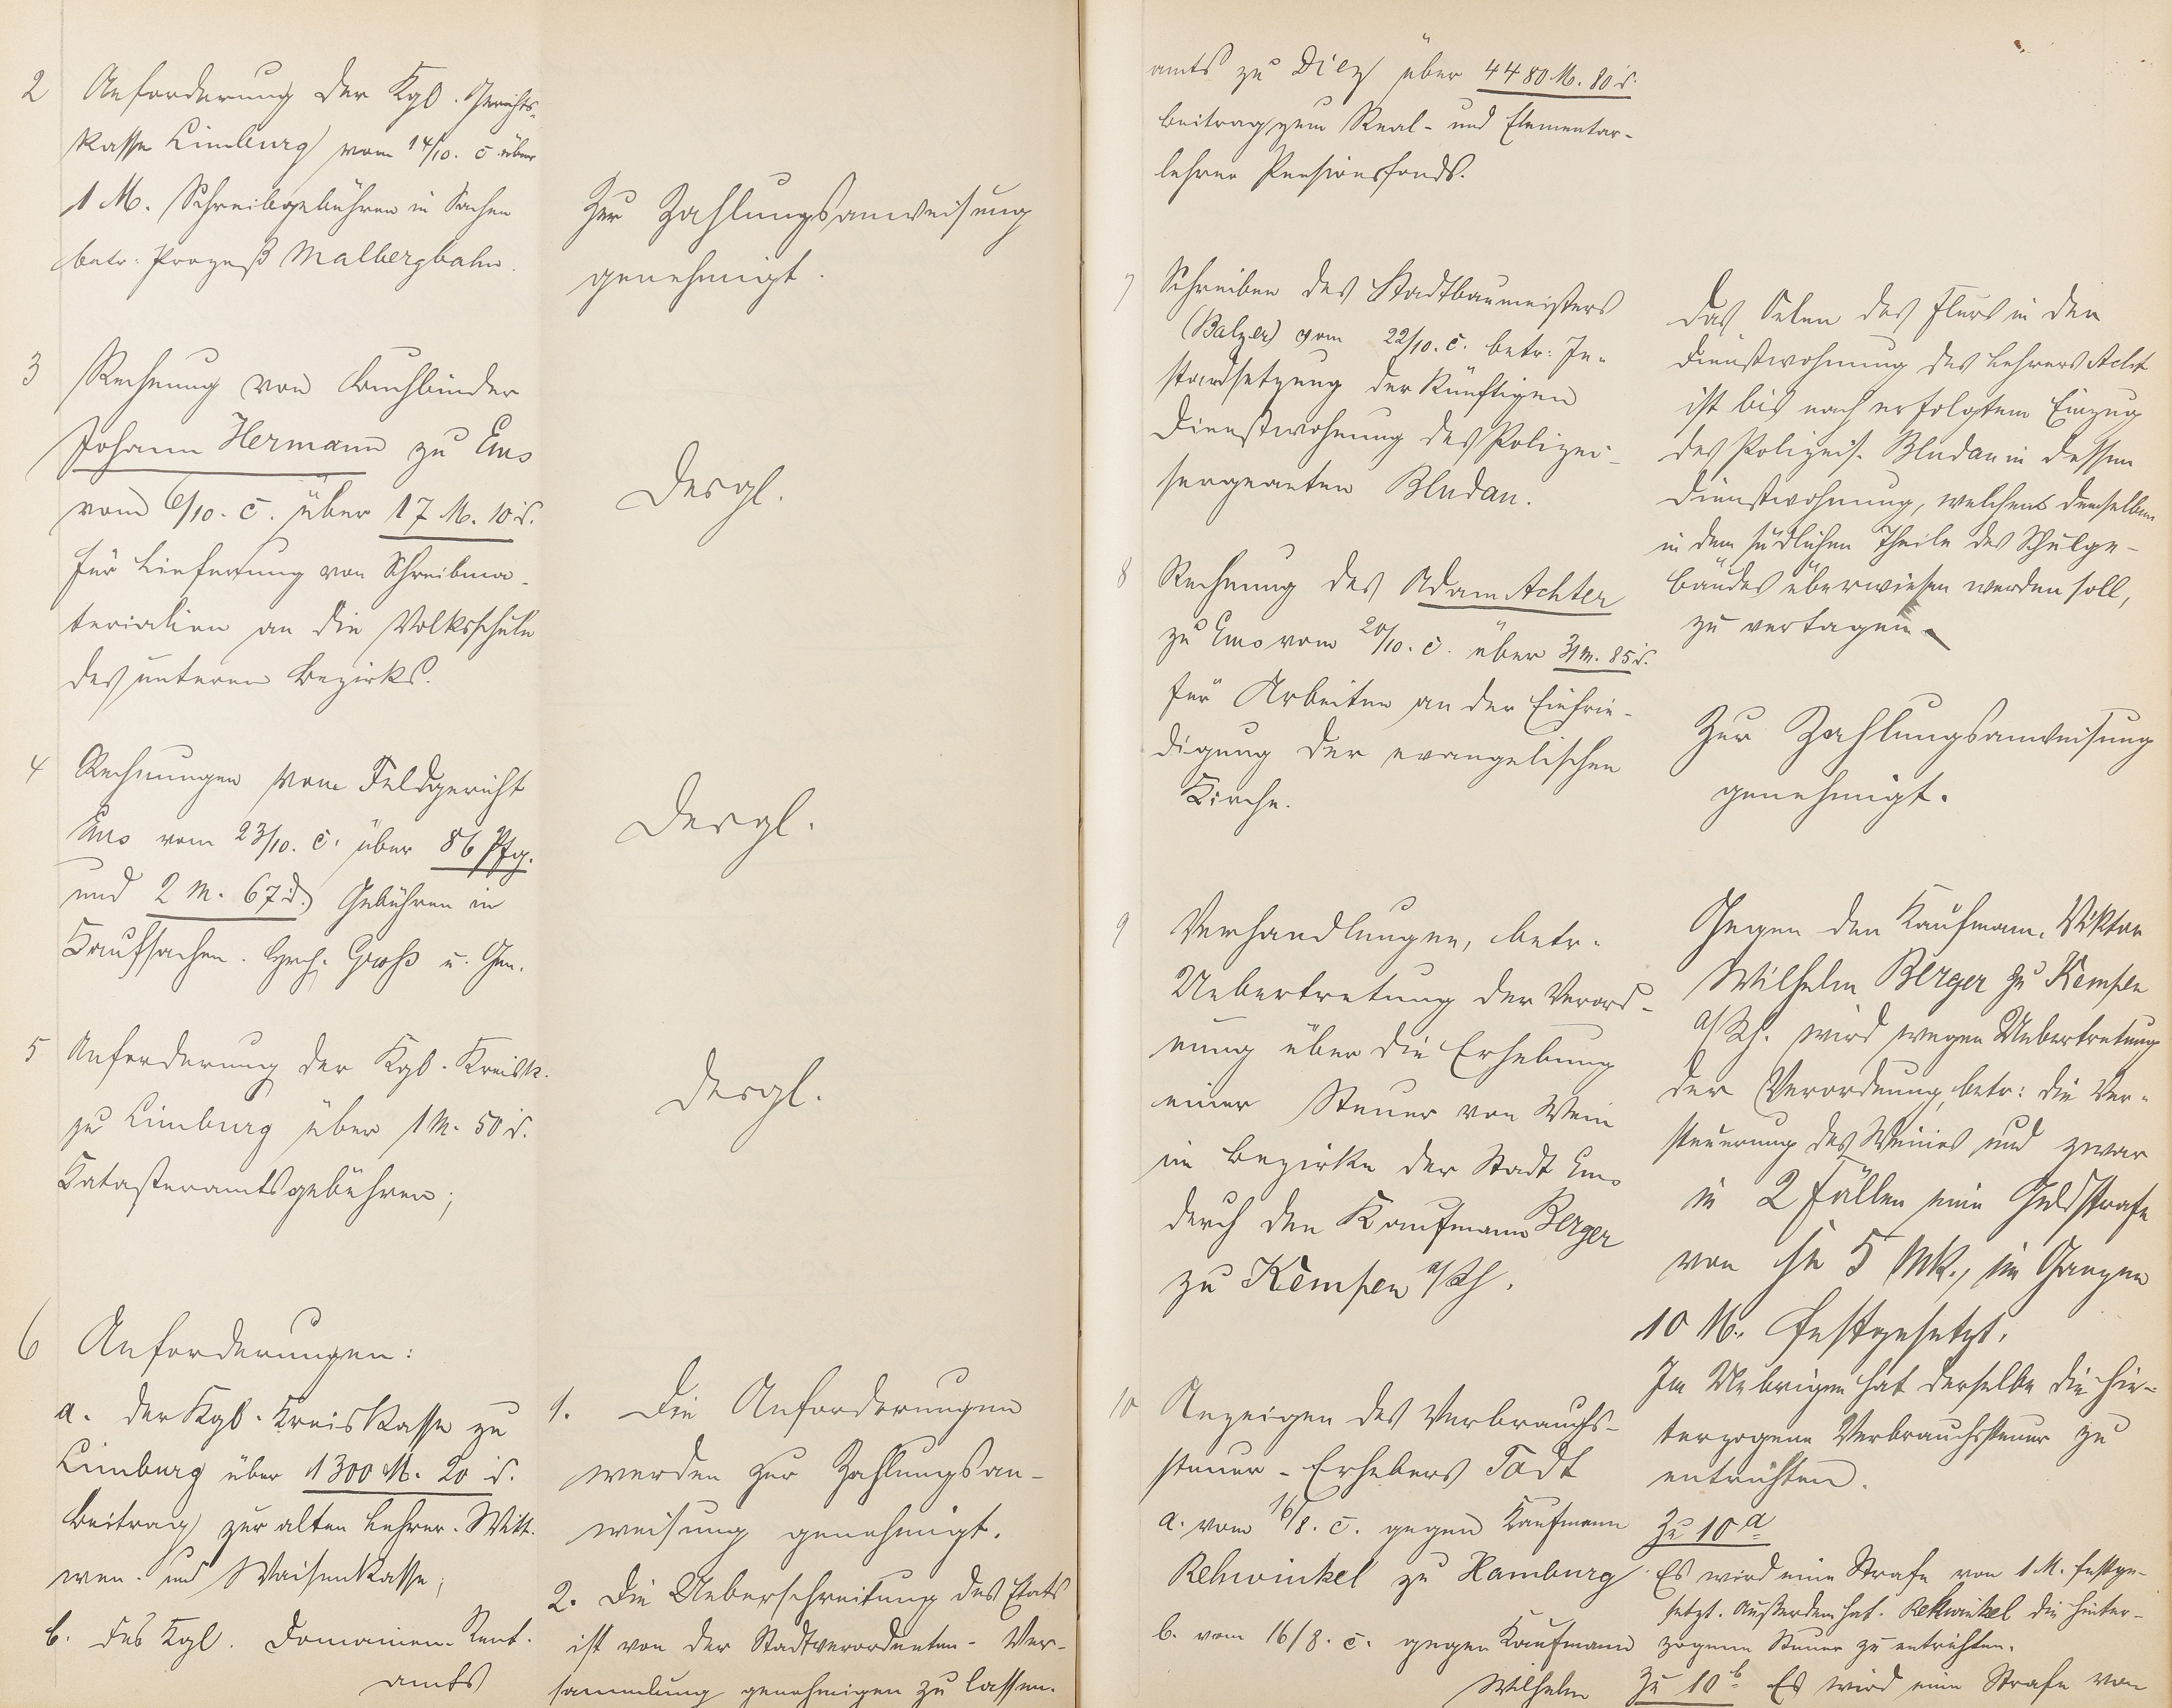 2 Anforderung der Kgl. Gerichts-
kasse Limburg vom 14/10. c. über
1 M. Schreibgebühren in Sachen
betr. Prozeß Malbergbahn.
Zur Zahlungsanweisung
genehmigt.
3 Rechnung von Buchbinder
Johann Hermann zu Ems
vom 6/10. c. über 17 M. 10 d.
für Lieferung von Schreibma-
terialien an die Volksschule
des unteren Bezirks.
Desgl.
4 Rechnungen vom Feldgericht
Ems vom 23/10. c. über 86 Pfg.
und 2 M. 67 d. Gebühren in
Kaufsachen. Groß u. Gen.
Desgl.
5 Anforderung der Kgl. Kreisk.
zu Limburg über 1 M. 50 d.
Katasteramtsgebühren;
Desgl.
6 Anforderungen:
a. der Kgl. Kreiskasse zu
Limburg über 1300 M. 20 d.
Beitrag zur alten Lehrer-Witt-
wen- und Waisenkasse;
b. des Kgl. Domainen-Rent-
amts
1. Die Anforderungen
werden zur Zahlungsan-
weisung genehmigt.
2. Die Ueberschreitung des Etats
ist von der Stadtverordneten-Ver-
sammlung genehmigen zu lassen.
amts zu Diez über 4480 M. 80 d.
Beitrag zum Real- und Elementar-
lehrer Pensionsfonds.
7 Schreiben des Stadtbaumeisters
(Balzer) vom 22/10. c. betr: In-
standsetzung der künftigen
Dienstwohnung des Polizei-
sergeanten Bludau.
Das Oelen des Flurs in der
Dienstwohnung des Lehrers Acht
ist bis nach erfolgtem Einzug
des Polizeis. Bludau in dessen
Dienstwohnung, welchens demselben
in dem südlichen Theile des Schulge-
bäudes überwiesen werden soll,
zu vertagen.
8 Rechnung des Adam Achter
zu Ems vom 20/10. c. über 3 M. 85 d.
für Arbeiten an der Einfrie-
digung der evangelischen
Kirche.
Zur Zahlungsanweisung
genehmigt.
9 Verhandlungen, betr.
Uebertretung der Verord-
nung über die Erhebung
einer Steuer von Wein
im Bezirke der Stadt Ems
durch den Kaufmann Berger
zu Kempen a/Rh.
Gegen den Kaufmann Viktor
Wilhelm Berger zu Kempen
a/Rh. wird wegen Uebertretung
der Verordnung, betr: die Ver-
steuerung des Weines und zwar
in 2 Fällen eine Geldstrafe
von je 5 Mk., im Ganzen
10 M. festgesetzt.
Im Uebrigen hat derselbe die hin-
terzogene Verbrauchssteuer zu
entrichten.
10 Anzeigen des Verbrauchs-
steuer-Erhebers Todt
a. vom 16/8. c. gegen Kaufmann
Rehwinkel zu Hamburg
b. vom 16/8. c. gegen Kaufmann
Wilhelm
Zu 10 a
Es wird eine Strafe von 1 M. festge-
setzt. Außerdem hat Rehwinkel die hinter-
zogene Steuer zu entrichten.
Zu 10 b Es wird eine Strafe von